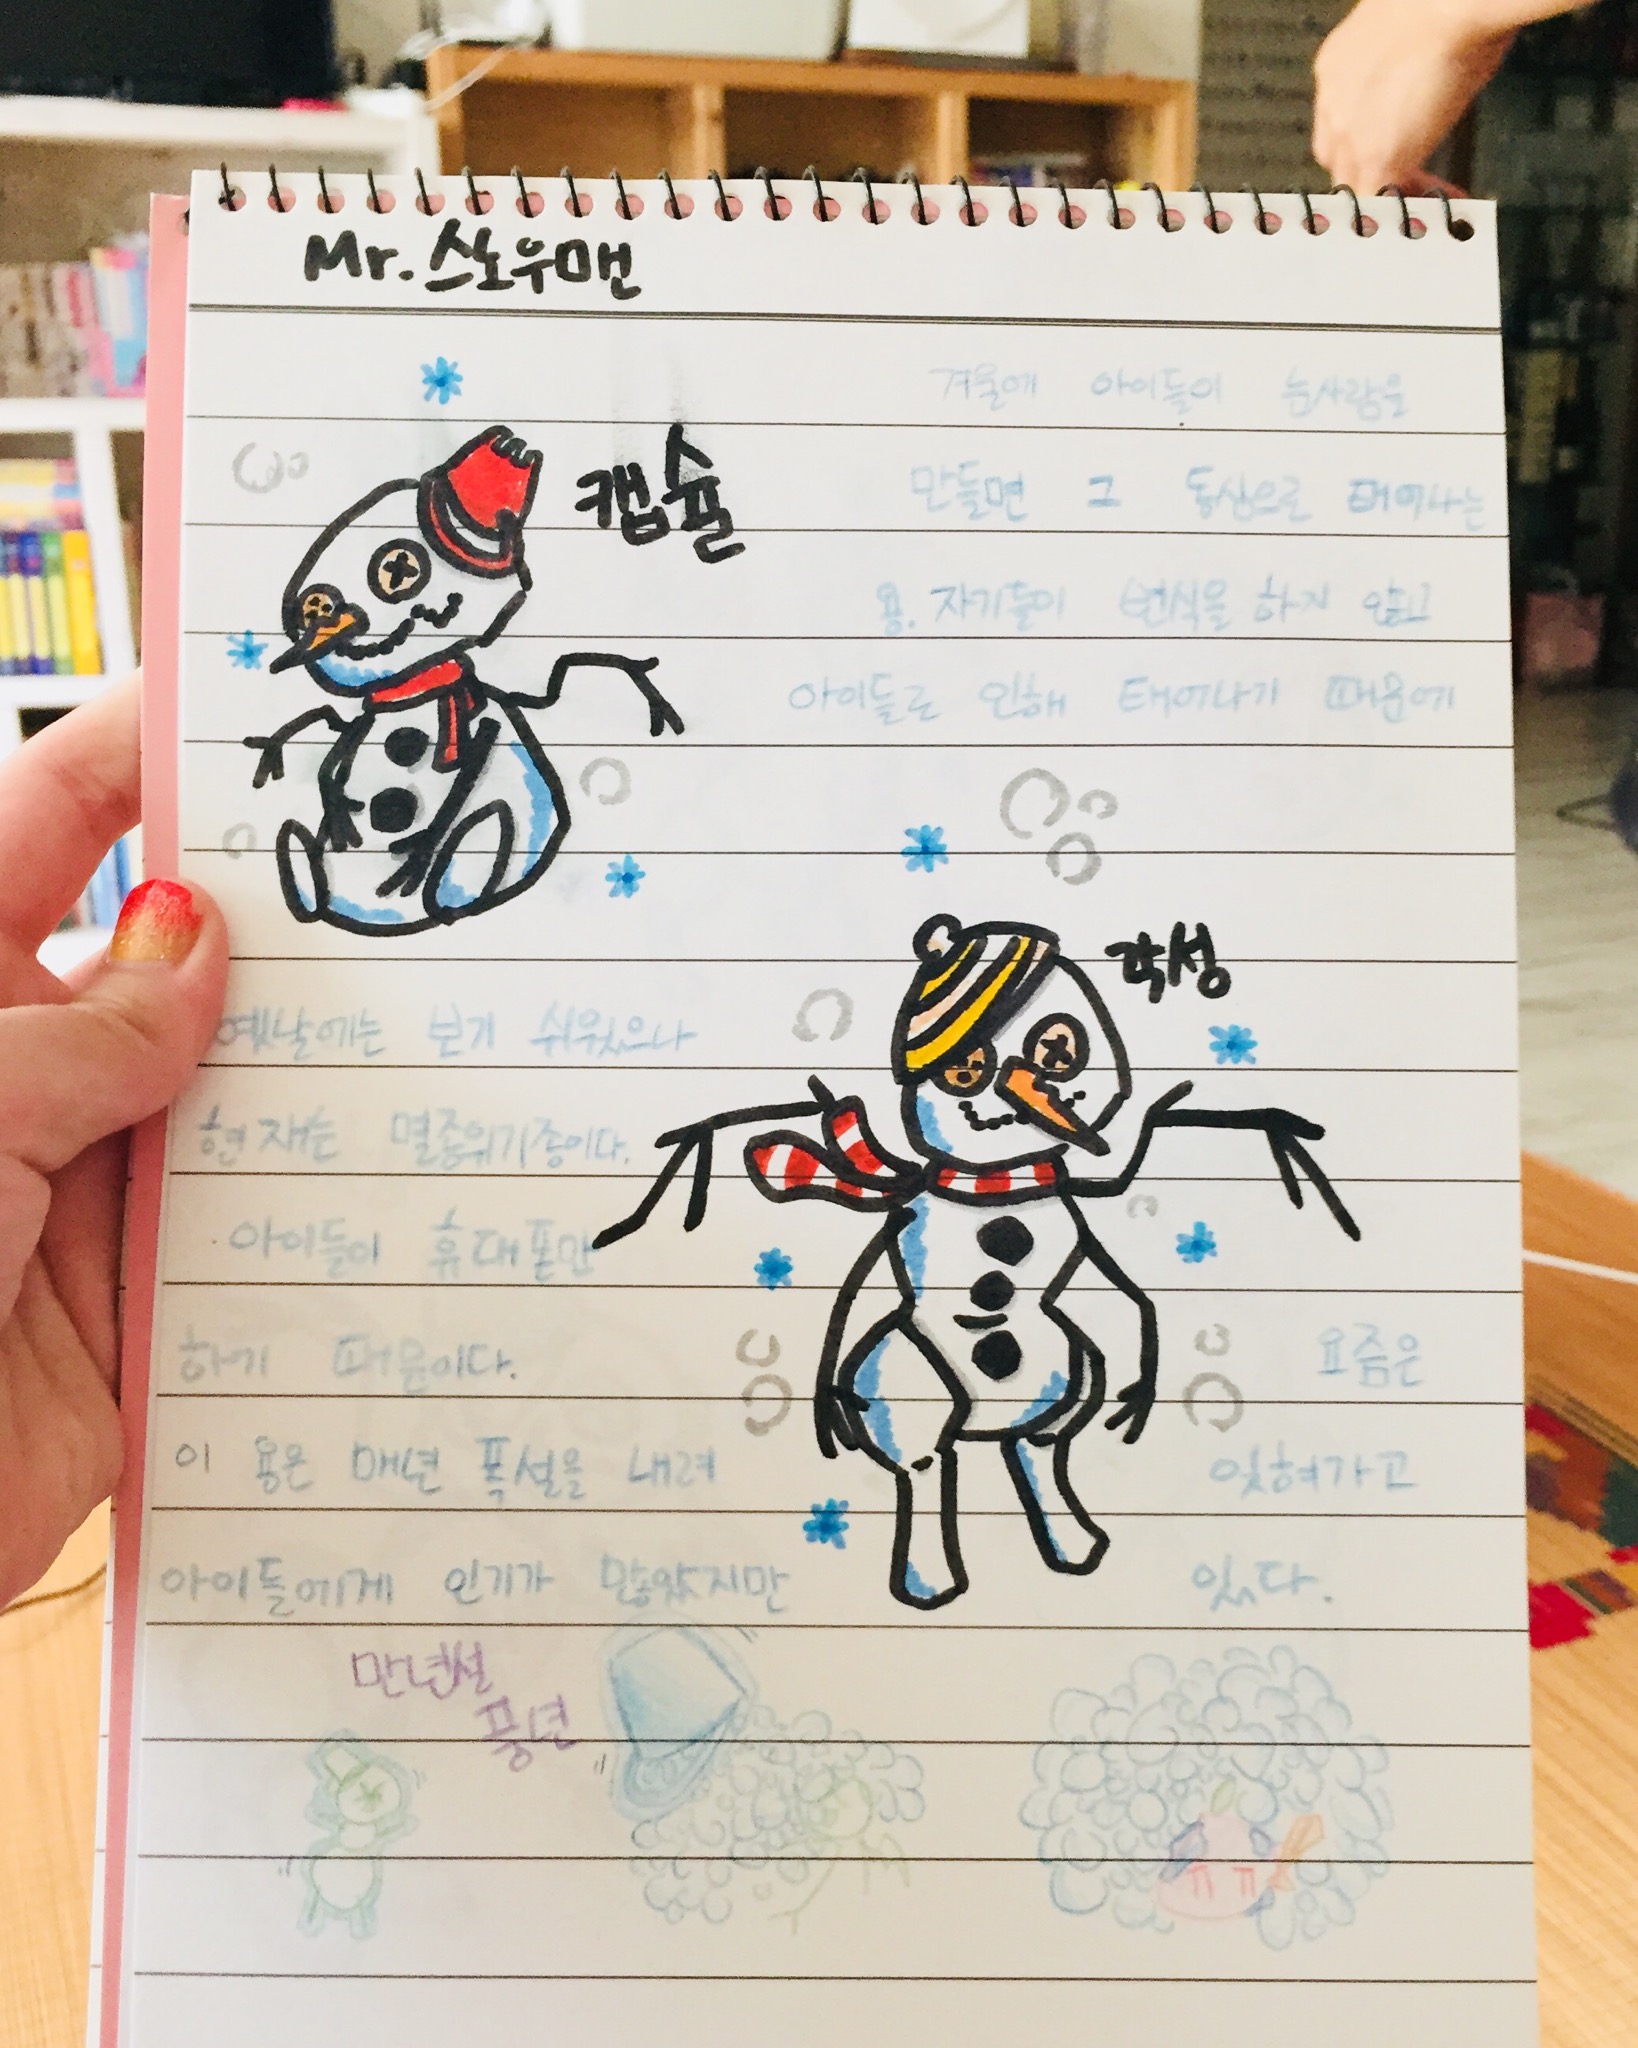 Mr. 스노우맨
겨울에 아이들이 눈사람을
캡슐
만들면 그 동심으로 태어나는
용. 자기들이 번식을 하지 않고
아이들로 인해 태어나기 때문에
각성
옛날에는 보기 쉬웠으나
현재는 멸종위기종이다.
아이들이 휴대폰만
하기 때문이다.
요즘은
이 용은 매년 폭설을 내려
잊혀가고
아이들에게 인기가 많았지만
있다.
만년설
풍년
ㅠ ㅠ